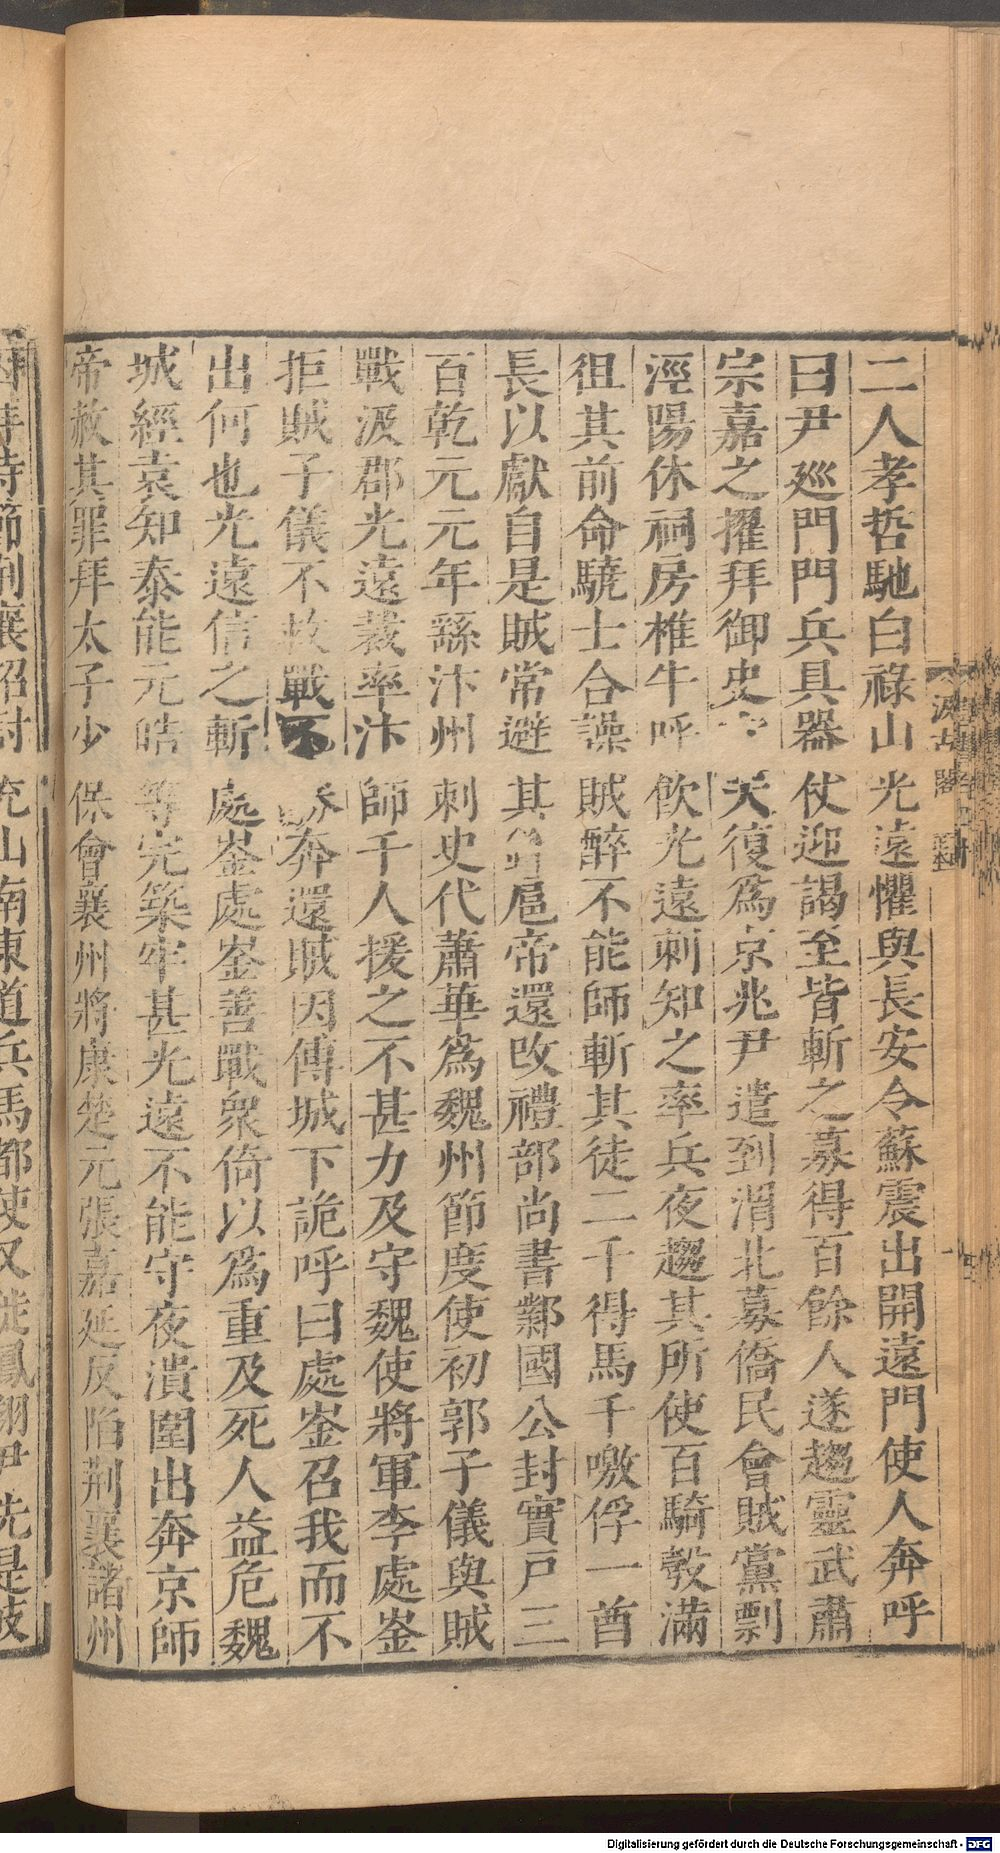 二人孝哲馳白祿山光遠懼與長安令蘇震出開遠門使人奔呼
曰尹廵門門兵具器仗迎謁至皆斬之募得百餘人遂趨靈武肅
宗嘉之擢拜御史天復爲京兆尹遣到渭北募僑民會賊黨剽
涇陽休祠房椎牛呼飲光遠刺知之率兵夜趨其所使百騎彀滿
徂其前命驍士合譟賊醉不能師斬其徒二千得馬千噭俘一酋
長以獻自是賊常避其扈帝還改禮部尚書鄴國公封實戶三
百乾元元年繇汴州刺史代蕭華爲魏州節度使初郭子儀與賊
戰汲郡光遠裁率汴師千人援之不甚力及守魏使將軍李處崟
拒賊子儀不救戰不勝奔還賊因傅城下詭呼曰處崟召我而不
出何也光遠信之斬處崟處崟善戰衆倚以爲重及死人益危魏
城經袁知泰能元皓等完築牢甚光遠不能守夜潰圍出奔京師
帝赦其罪拜太子少保會襄州將康楚元張嘉延反陷荆襄諸州
因持節荆襄招討充山南東道兵馬都使又徙鳳翔尹先是岐
汲古閣
Digitalisierung gefördert durch die Deutsche Forschungsgemeinschaft - DFG